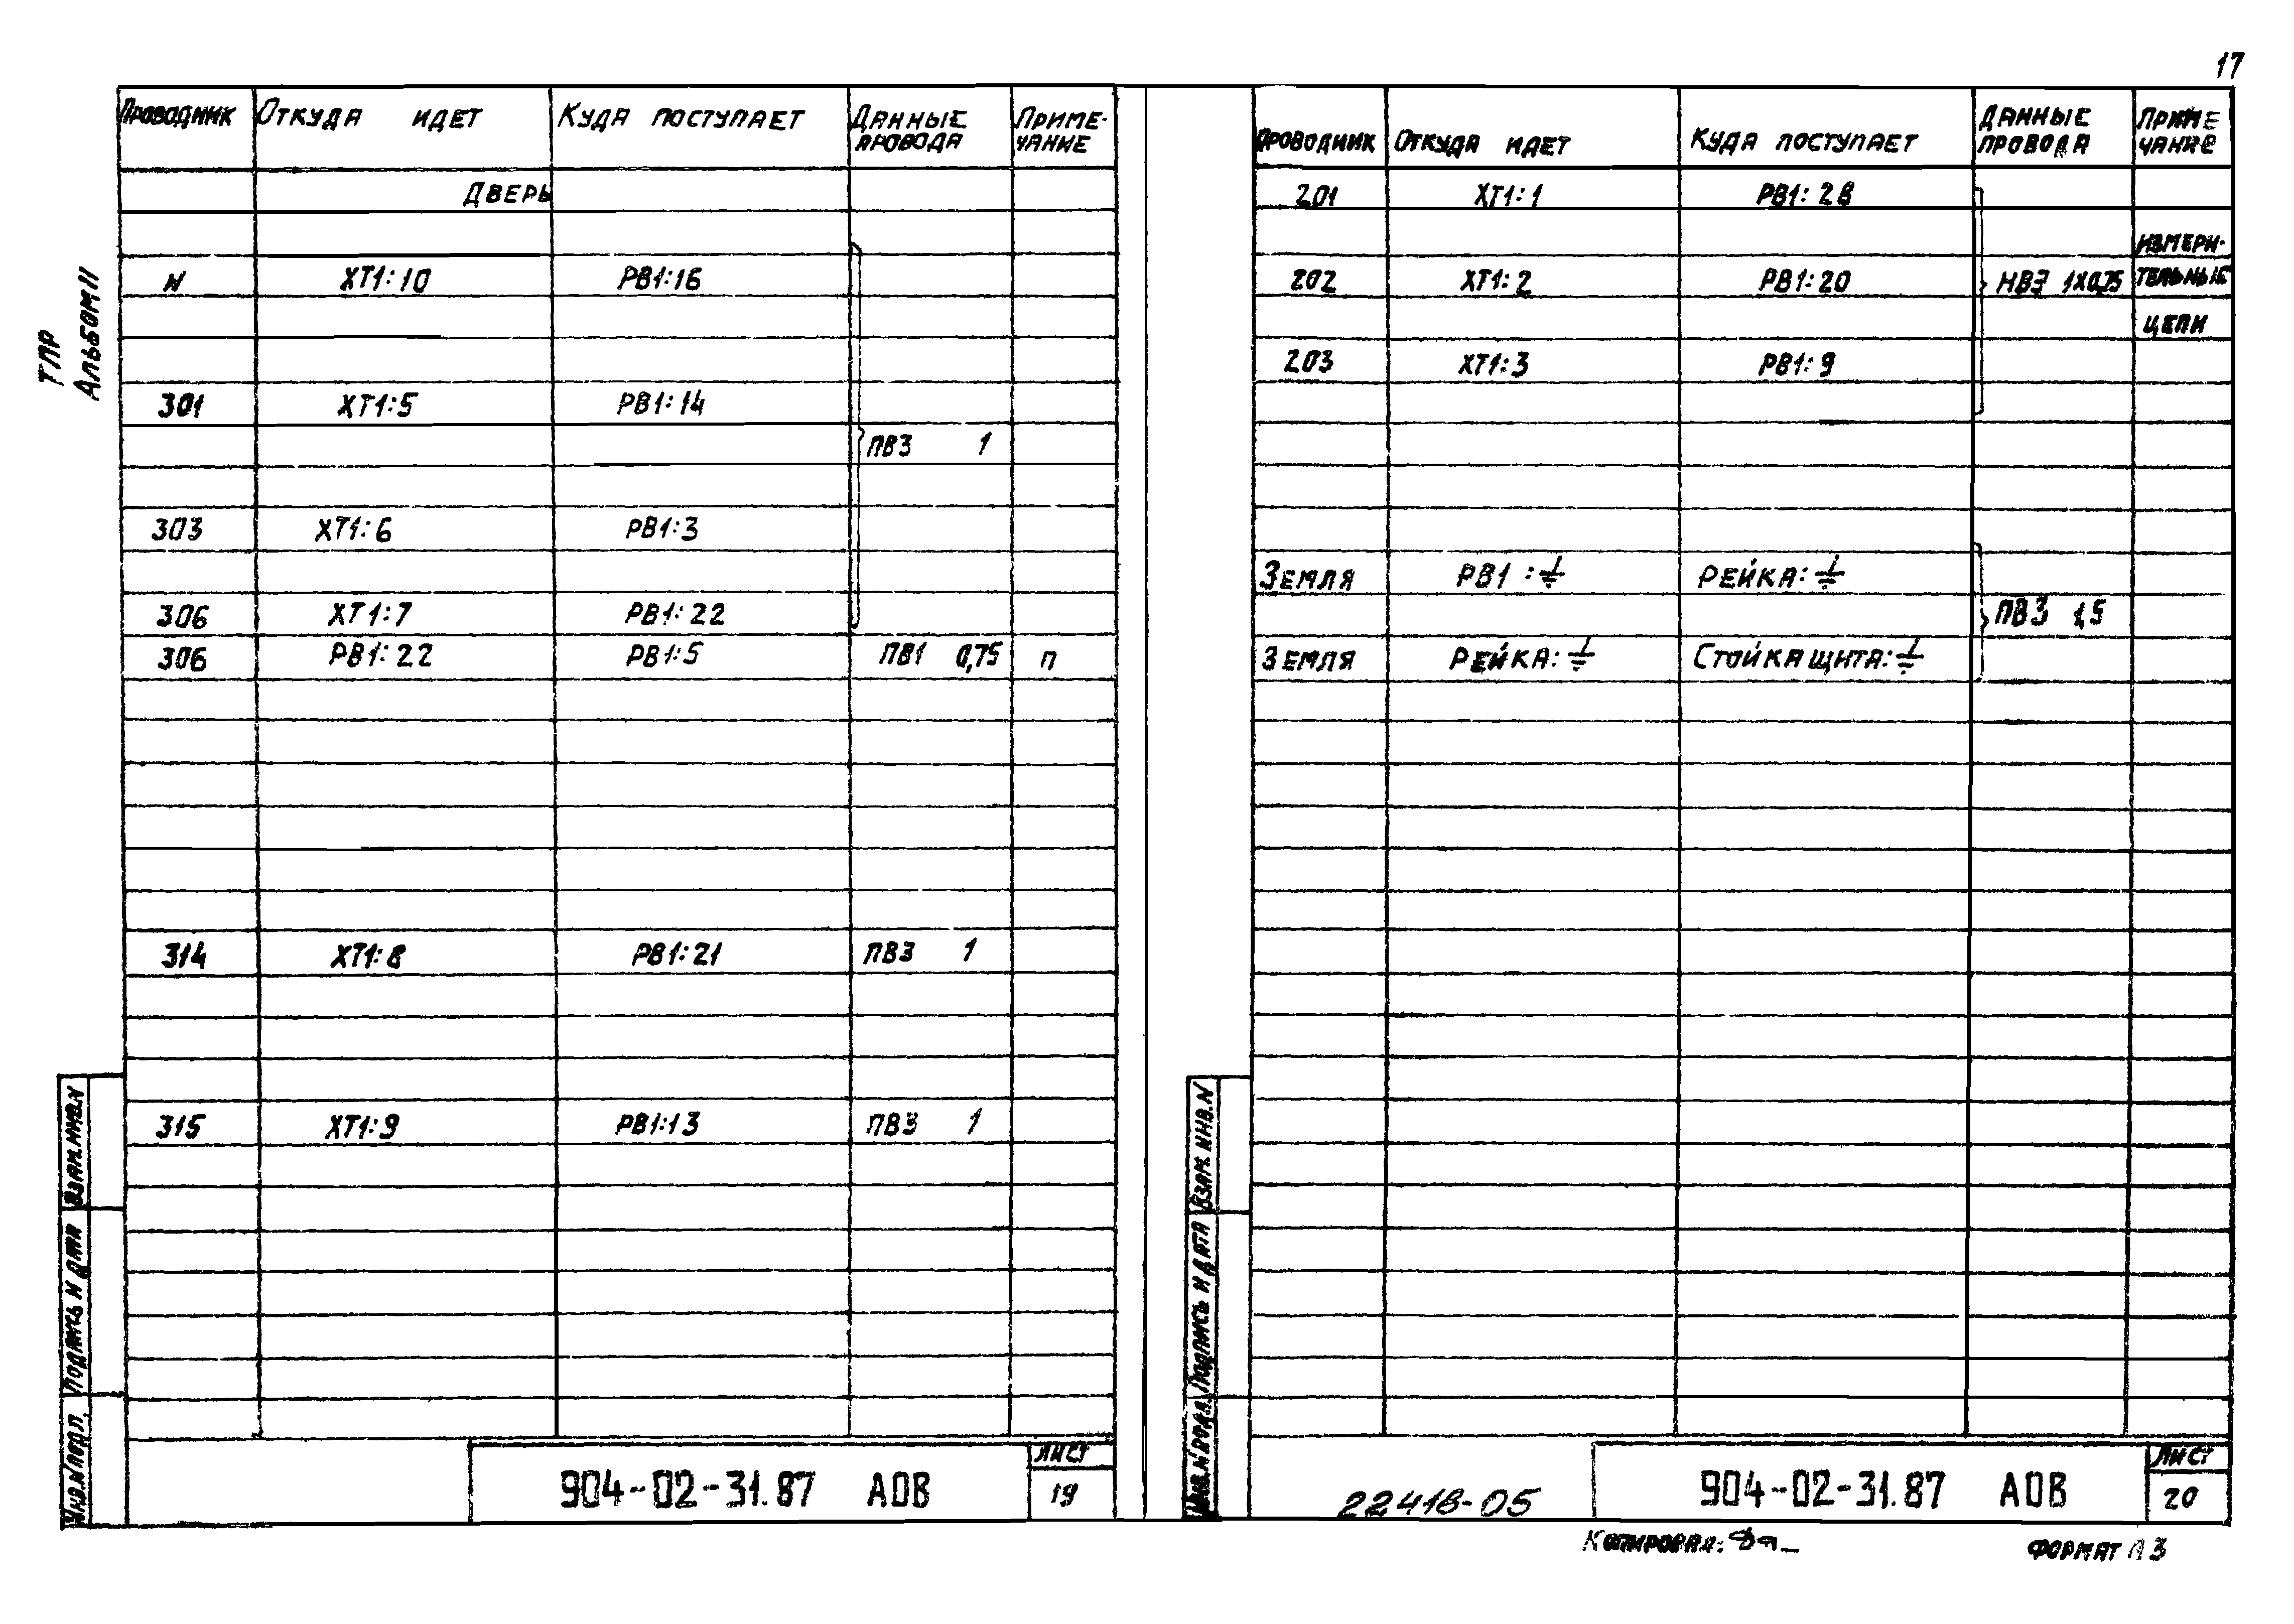 17
ТПР
Альбом II
Проводник Откуда идет Куда поступает Данные провода Приме-чание
Дверь
N ХТ1:10 РВ1:16
301 ХТ1:5 РВ1:14
ПВ3 1
303 ХТ1:6 РВ1:3
306 ХТ1:7 РВ1:22
306 РВ1:22 РВ1:5 ПВ1 0,75 п
314 ХТ1:8 РВ1:21 ПВ3 1
315 ХТ1:9 РВ1:13 ПВ3 1
Взам.инв.N
Подпись и дата
Инв.N подл.
904-02-31.87 АОВ
Лист
19
Проводник Откуда идет Куда поступает Данные провода Приме чание
201 ХТ1:1 РВ1:28
Измери-
202 ХТ1:2 РВ1:20 НВЭ 1х0,75 тельные
цепи
203 ХТ1:3 РВ1:9
Земля РВ1:⏚ Рейка:⏚
ПВ3 1,5
Земля Рейка:⏚ Стойка щита:⏚
Взам.инв.N
Подпись и дата
Инв.N подл.
22418-05
904-02-31.87 АОВ
Лист
20
Копировал:
Формат А3